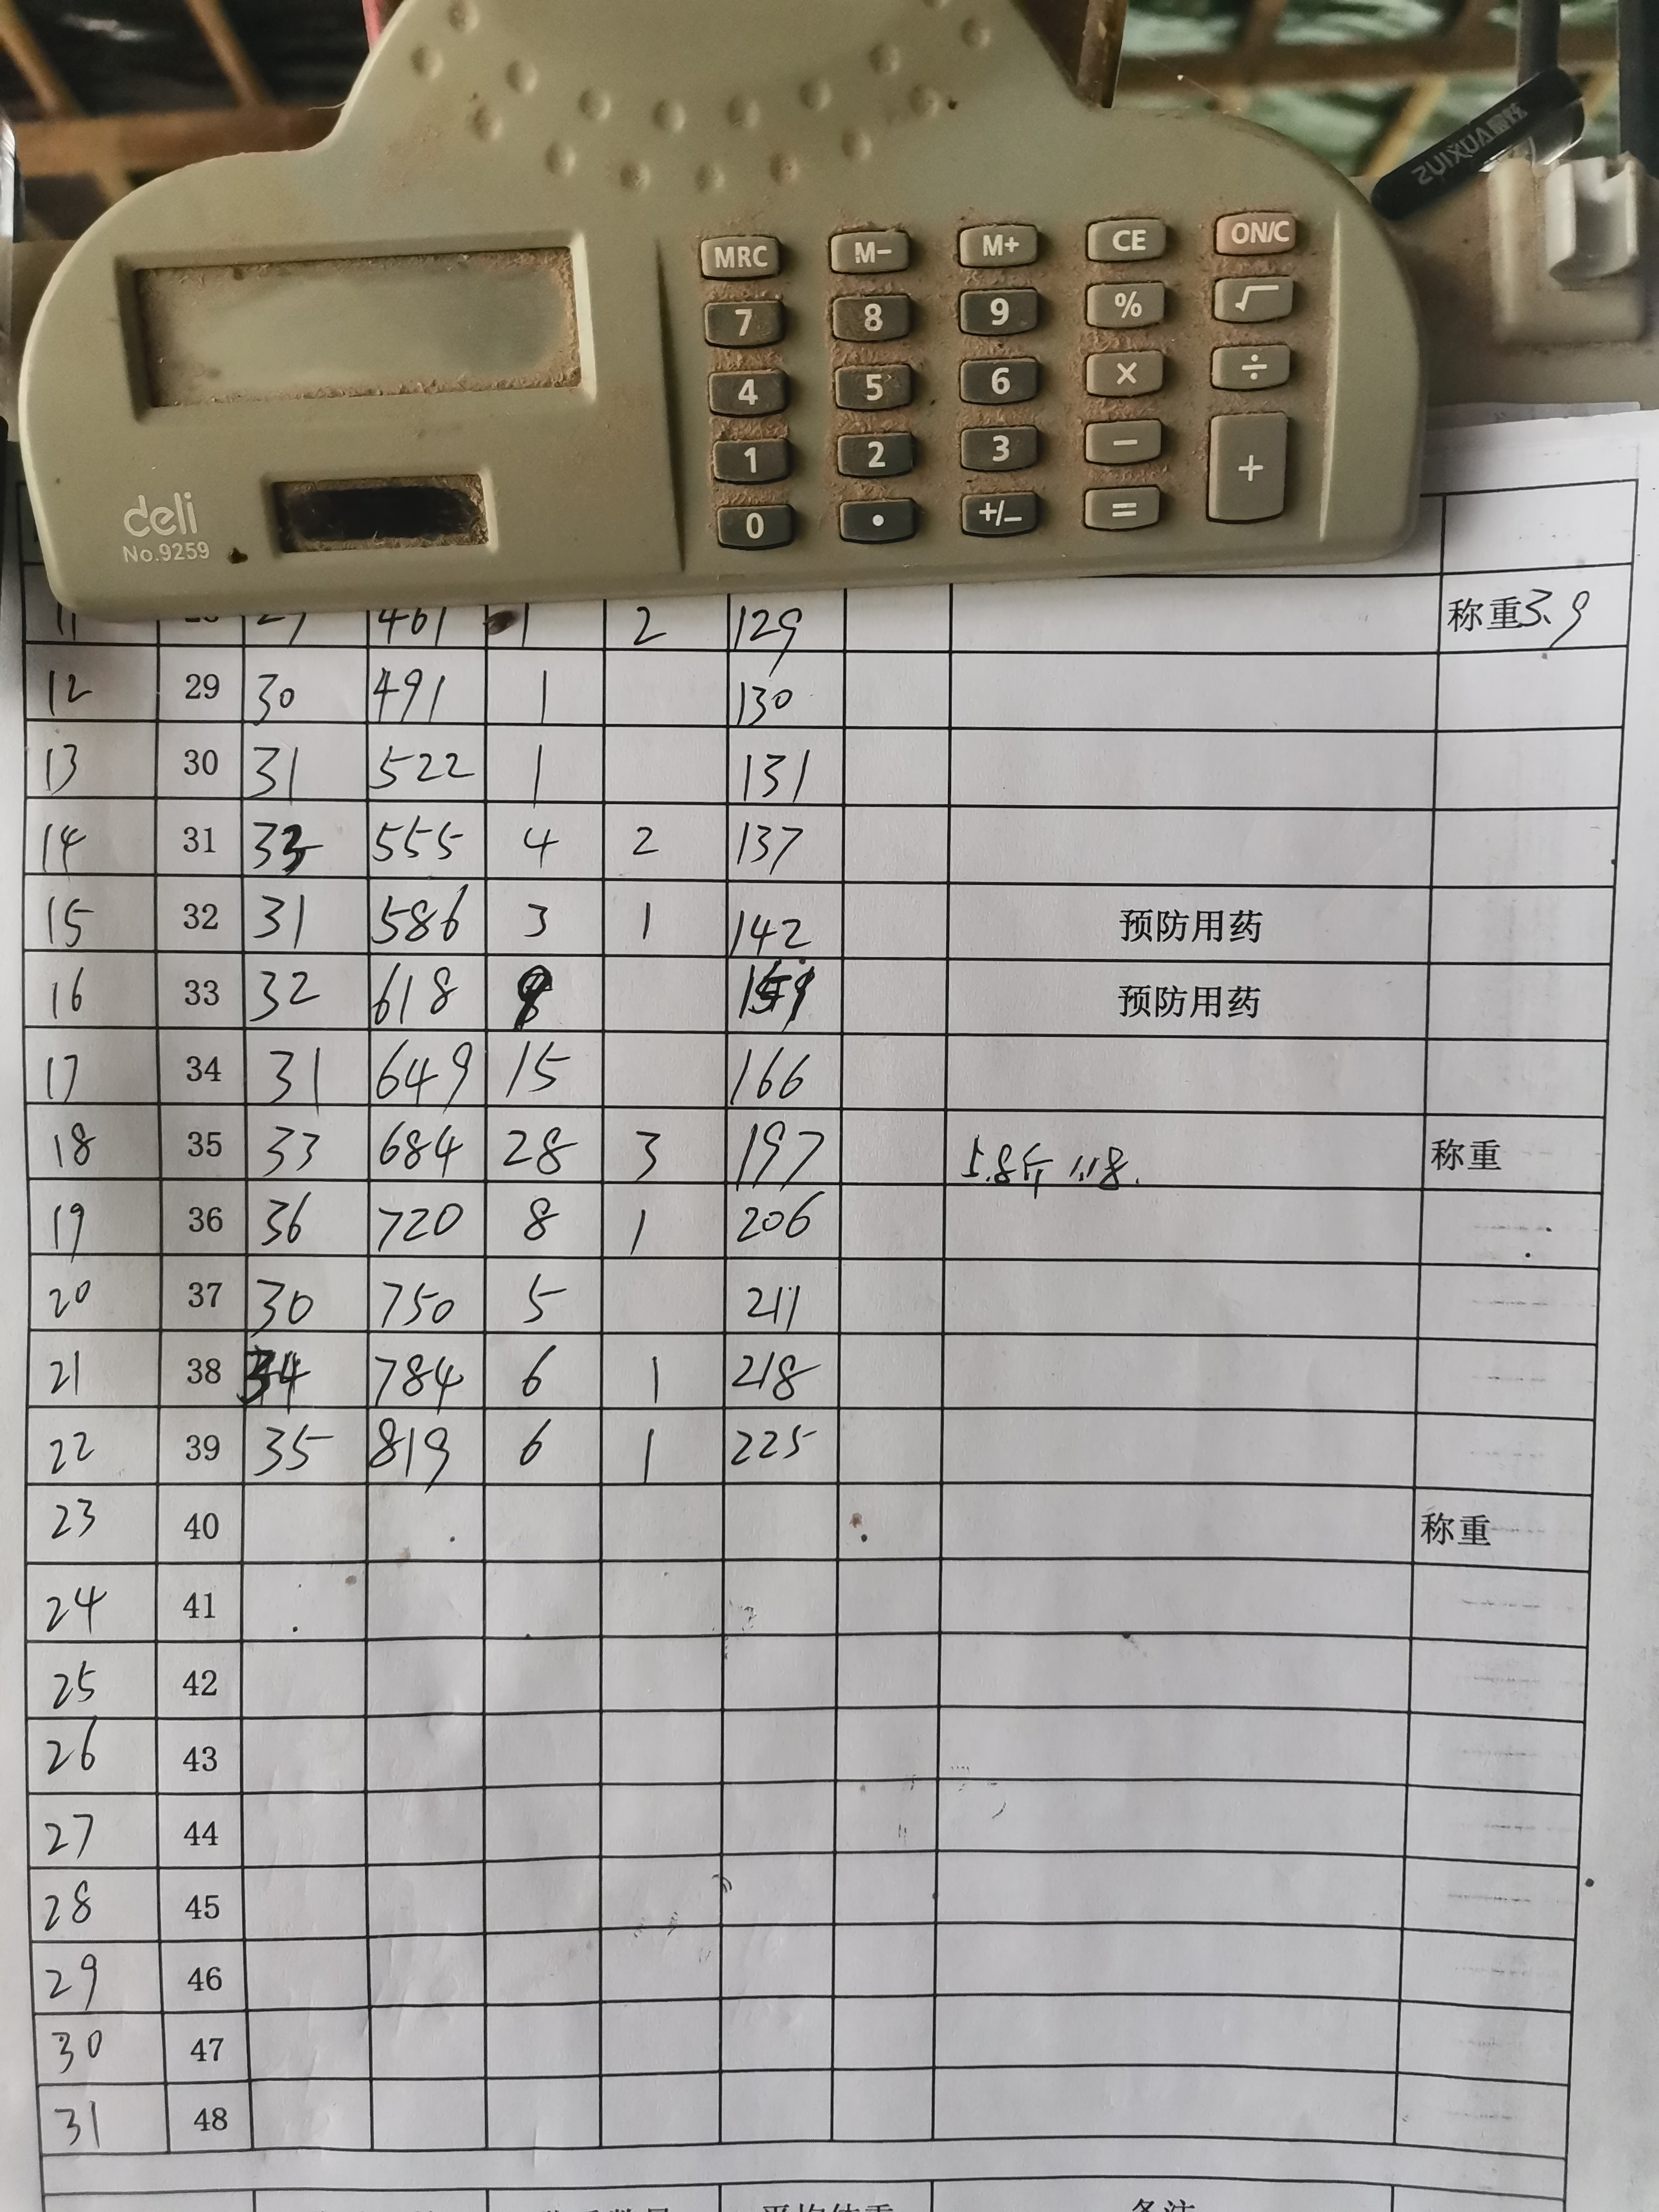 ZUIXUA
MRC M− M+ CE ON/C
7 8 9 % √
4 5 6 × ÷
1 2 3 − +
0 • +/− =
deli
No.9259
11 461 1 2 129 称重3.9
12 29 30 491 1 130
13 30 31 522 1 131
14 31 33 555 4 2 137
15 32 31 586 3 1 142 预防用药
16 33 32 618 9 151 预防用药
17 34 31 649 15 166
18 35 33 684 28 3 197 5.8斤 1.18. 称重
19 36 36 720 8 1 206
20 37 30 750 5 211
21 38 34 784 6 1 218
22 39 35 819 6 1 225
23 40 称重
24 41
25 42
26 43
27 44
28 45
29 46
30 47
31 48
平均体重 备注